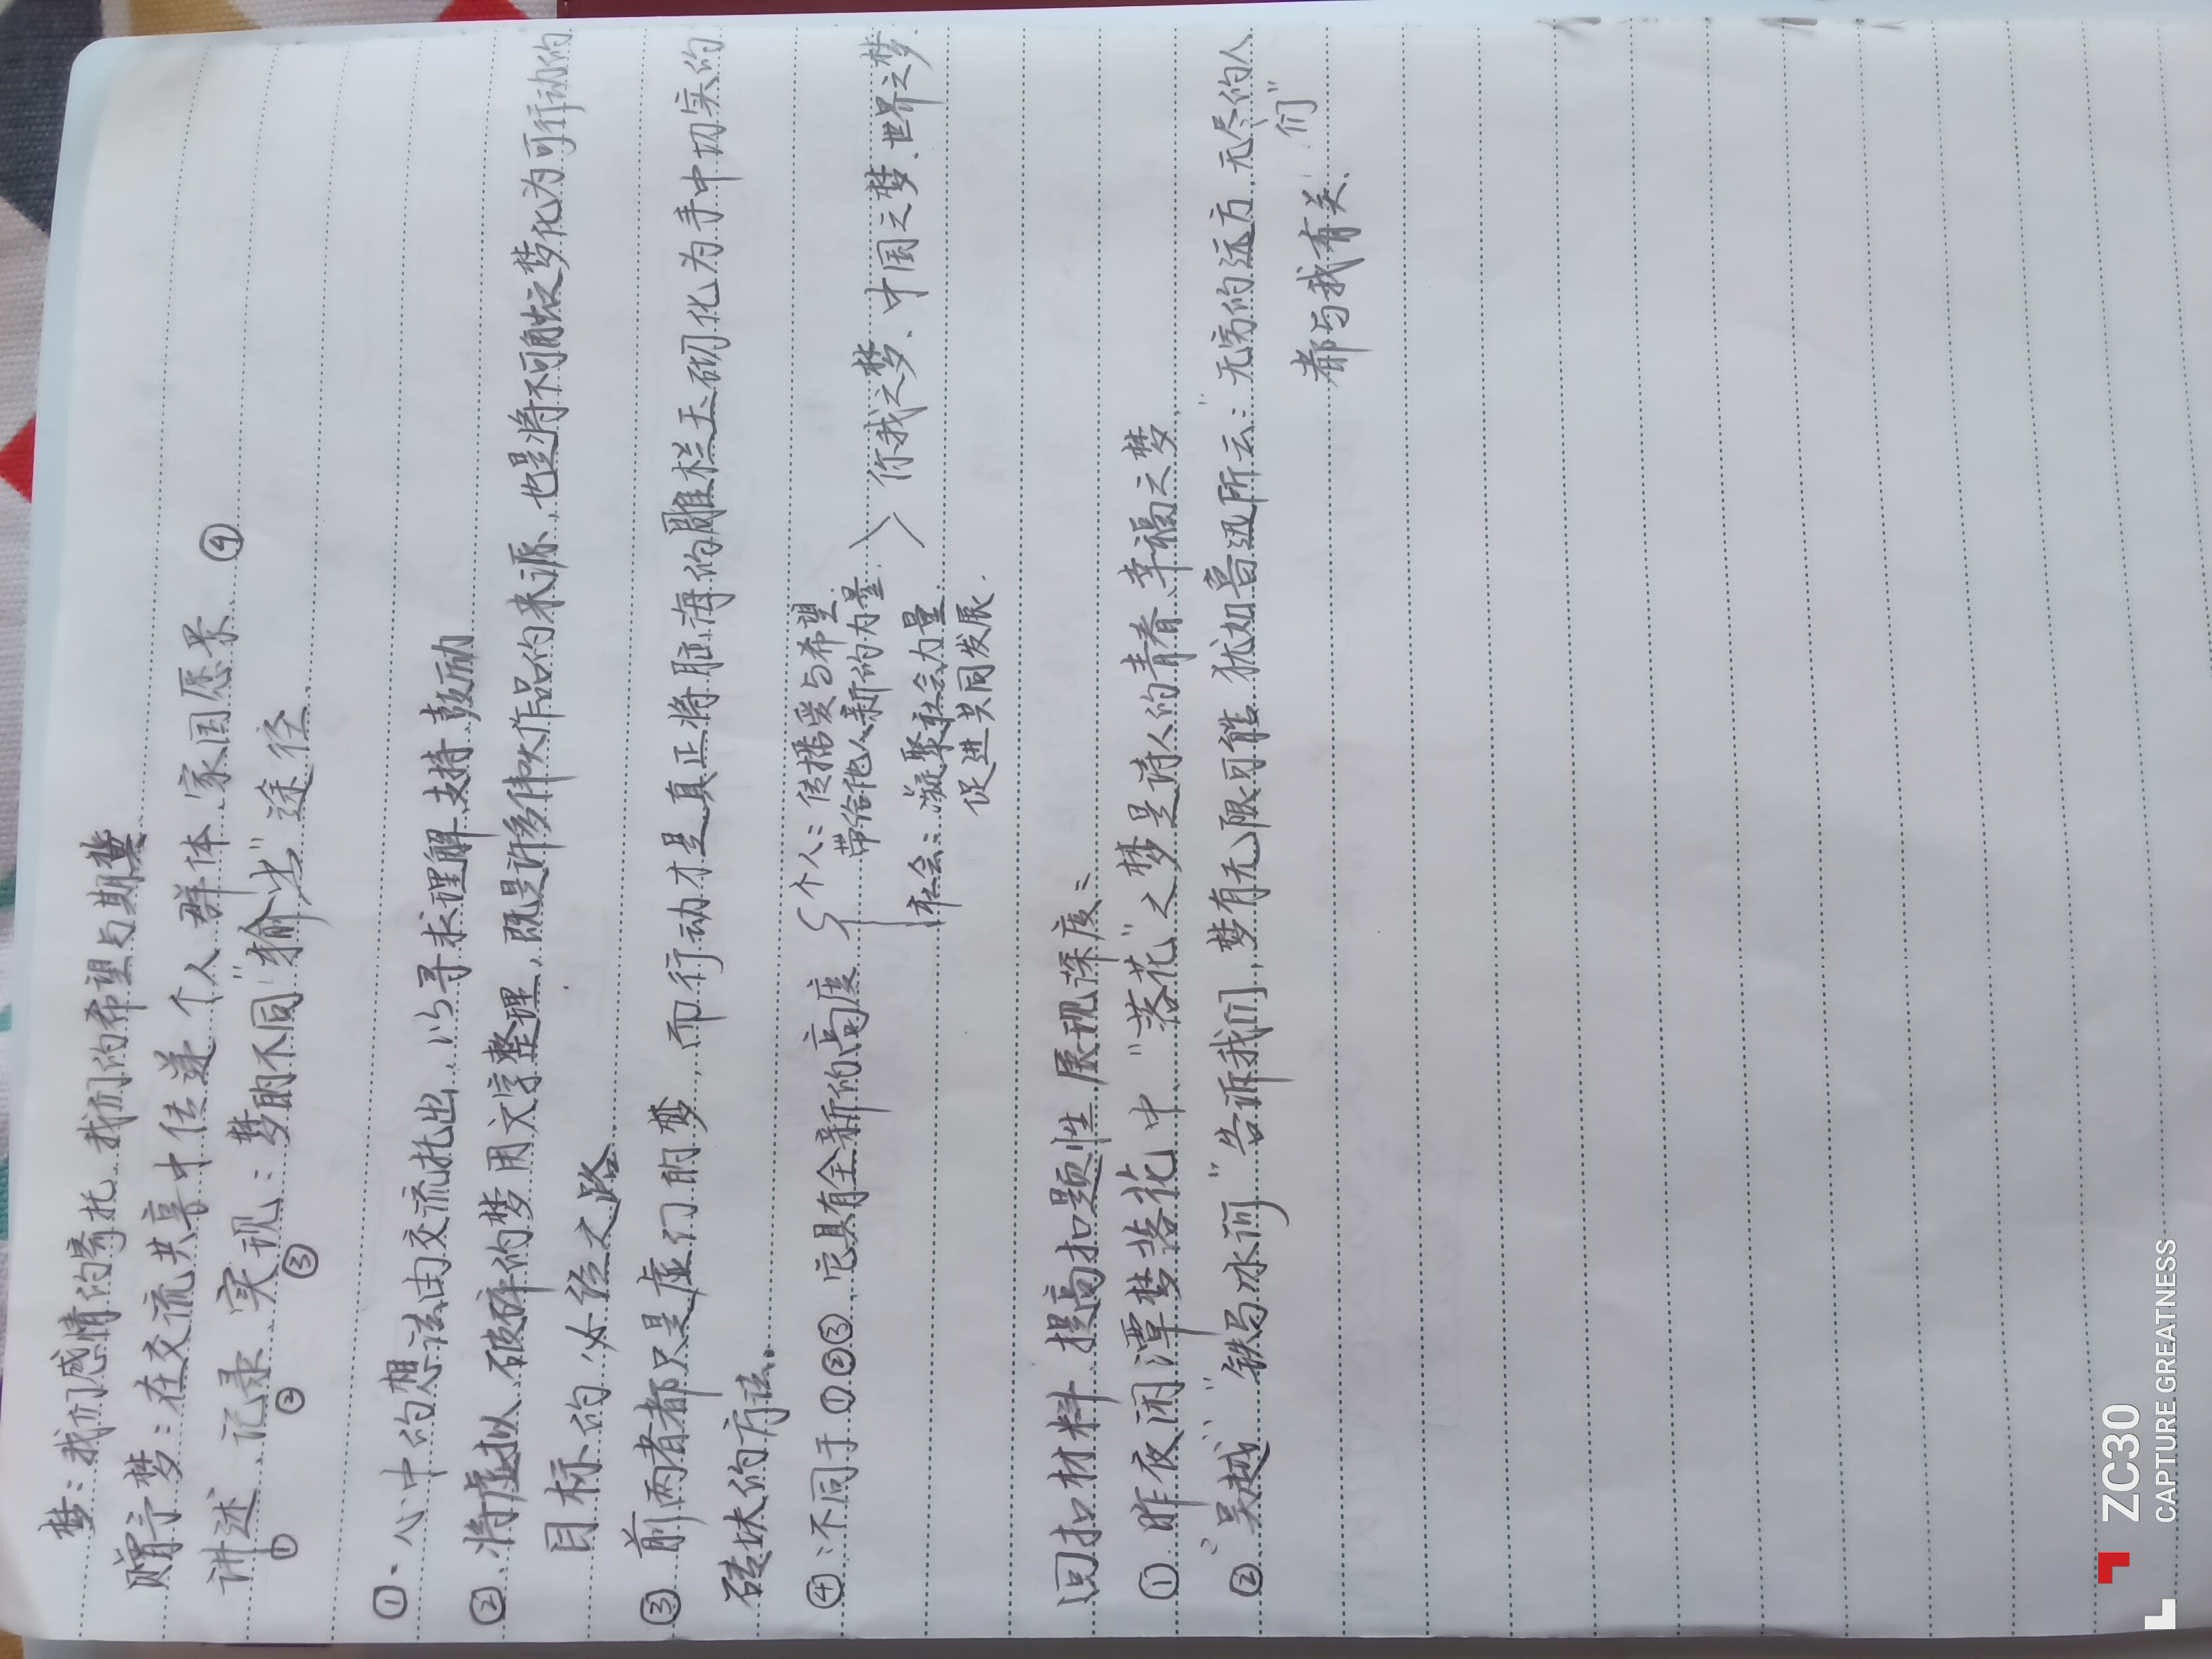 梦：我们感情的寄托、我们的希望与期冀
赠予梦：在交流共享中传递个人、群体、家国愿景 ④
讲述、记录、实现：梦的不同"输出"途径
① ② ③
①、心中的想法由交流托出，以寻求理解、支持、鼓励
②、将虚拟、破碎的梦用文字整理，既是许多伟大作品的来源，也是将不可触及之梦化为可行动的
目标的必经之路
③ 前两者都只是虚幻的梦，而行动才是真正将脑海的雕栏玉砌化为手中切实的
砖块的方法。
④：不同于①②③ 它具有全新的高度
个人：传播爱与希望
带给他人新的力量
社会：凝聚社会力量
促进共同发展
你我之梦、中国之梦、世界之梦
回扣材料，提高扣题性，展现深度：
① 昨夜闲潭梦落花中，"落花"之梦是诗人的青春、幸福之梦
② "吴越"、"铁马冰河"告诉我们，梦有无限可能，犹如鲁迅所云："无穷的远方，无尽的人
们"
都与我有关、
ZC30
CAPTURE GREATNESS